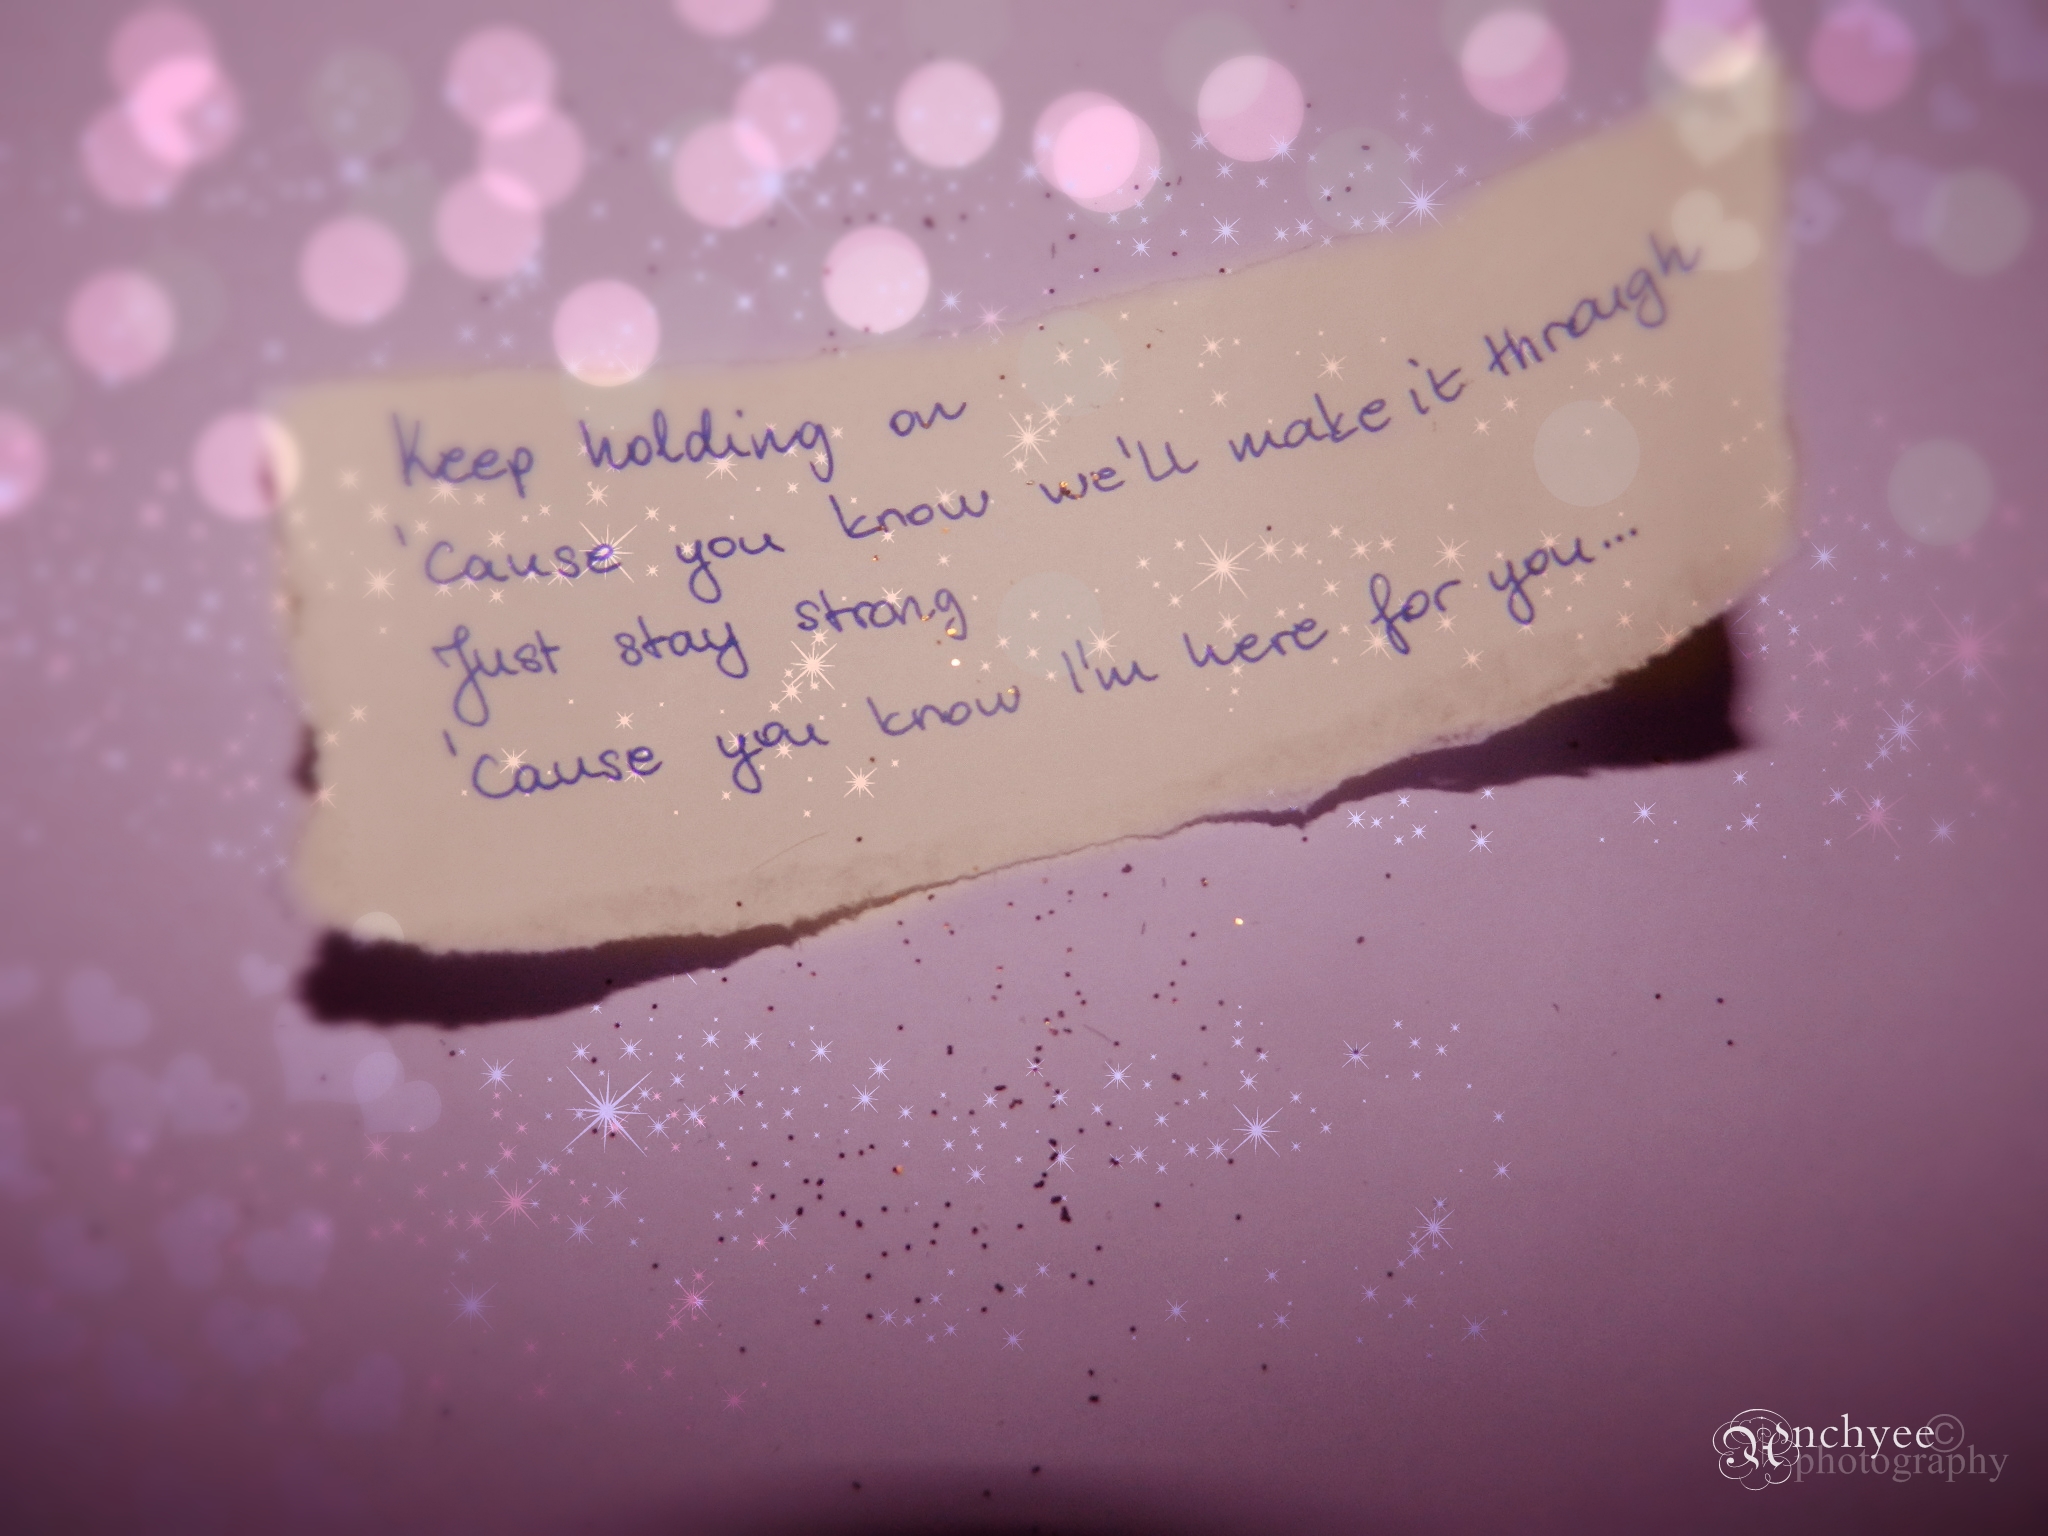 Keep holding on
'Cause you know we'll make it through
Just stay strong
'Cause you know I'm here for you...
Anchyee©
photography